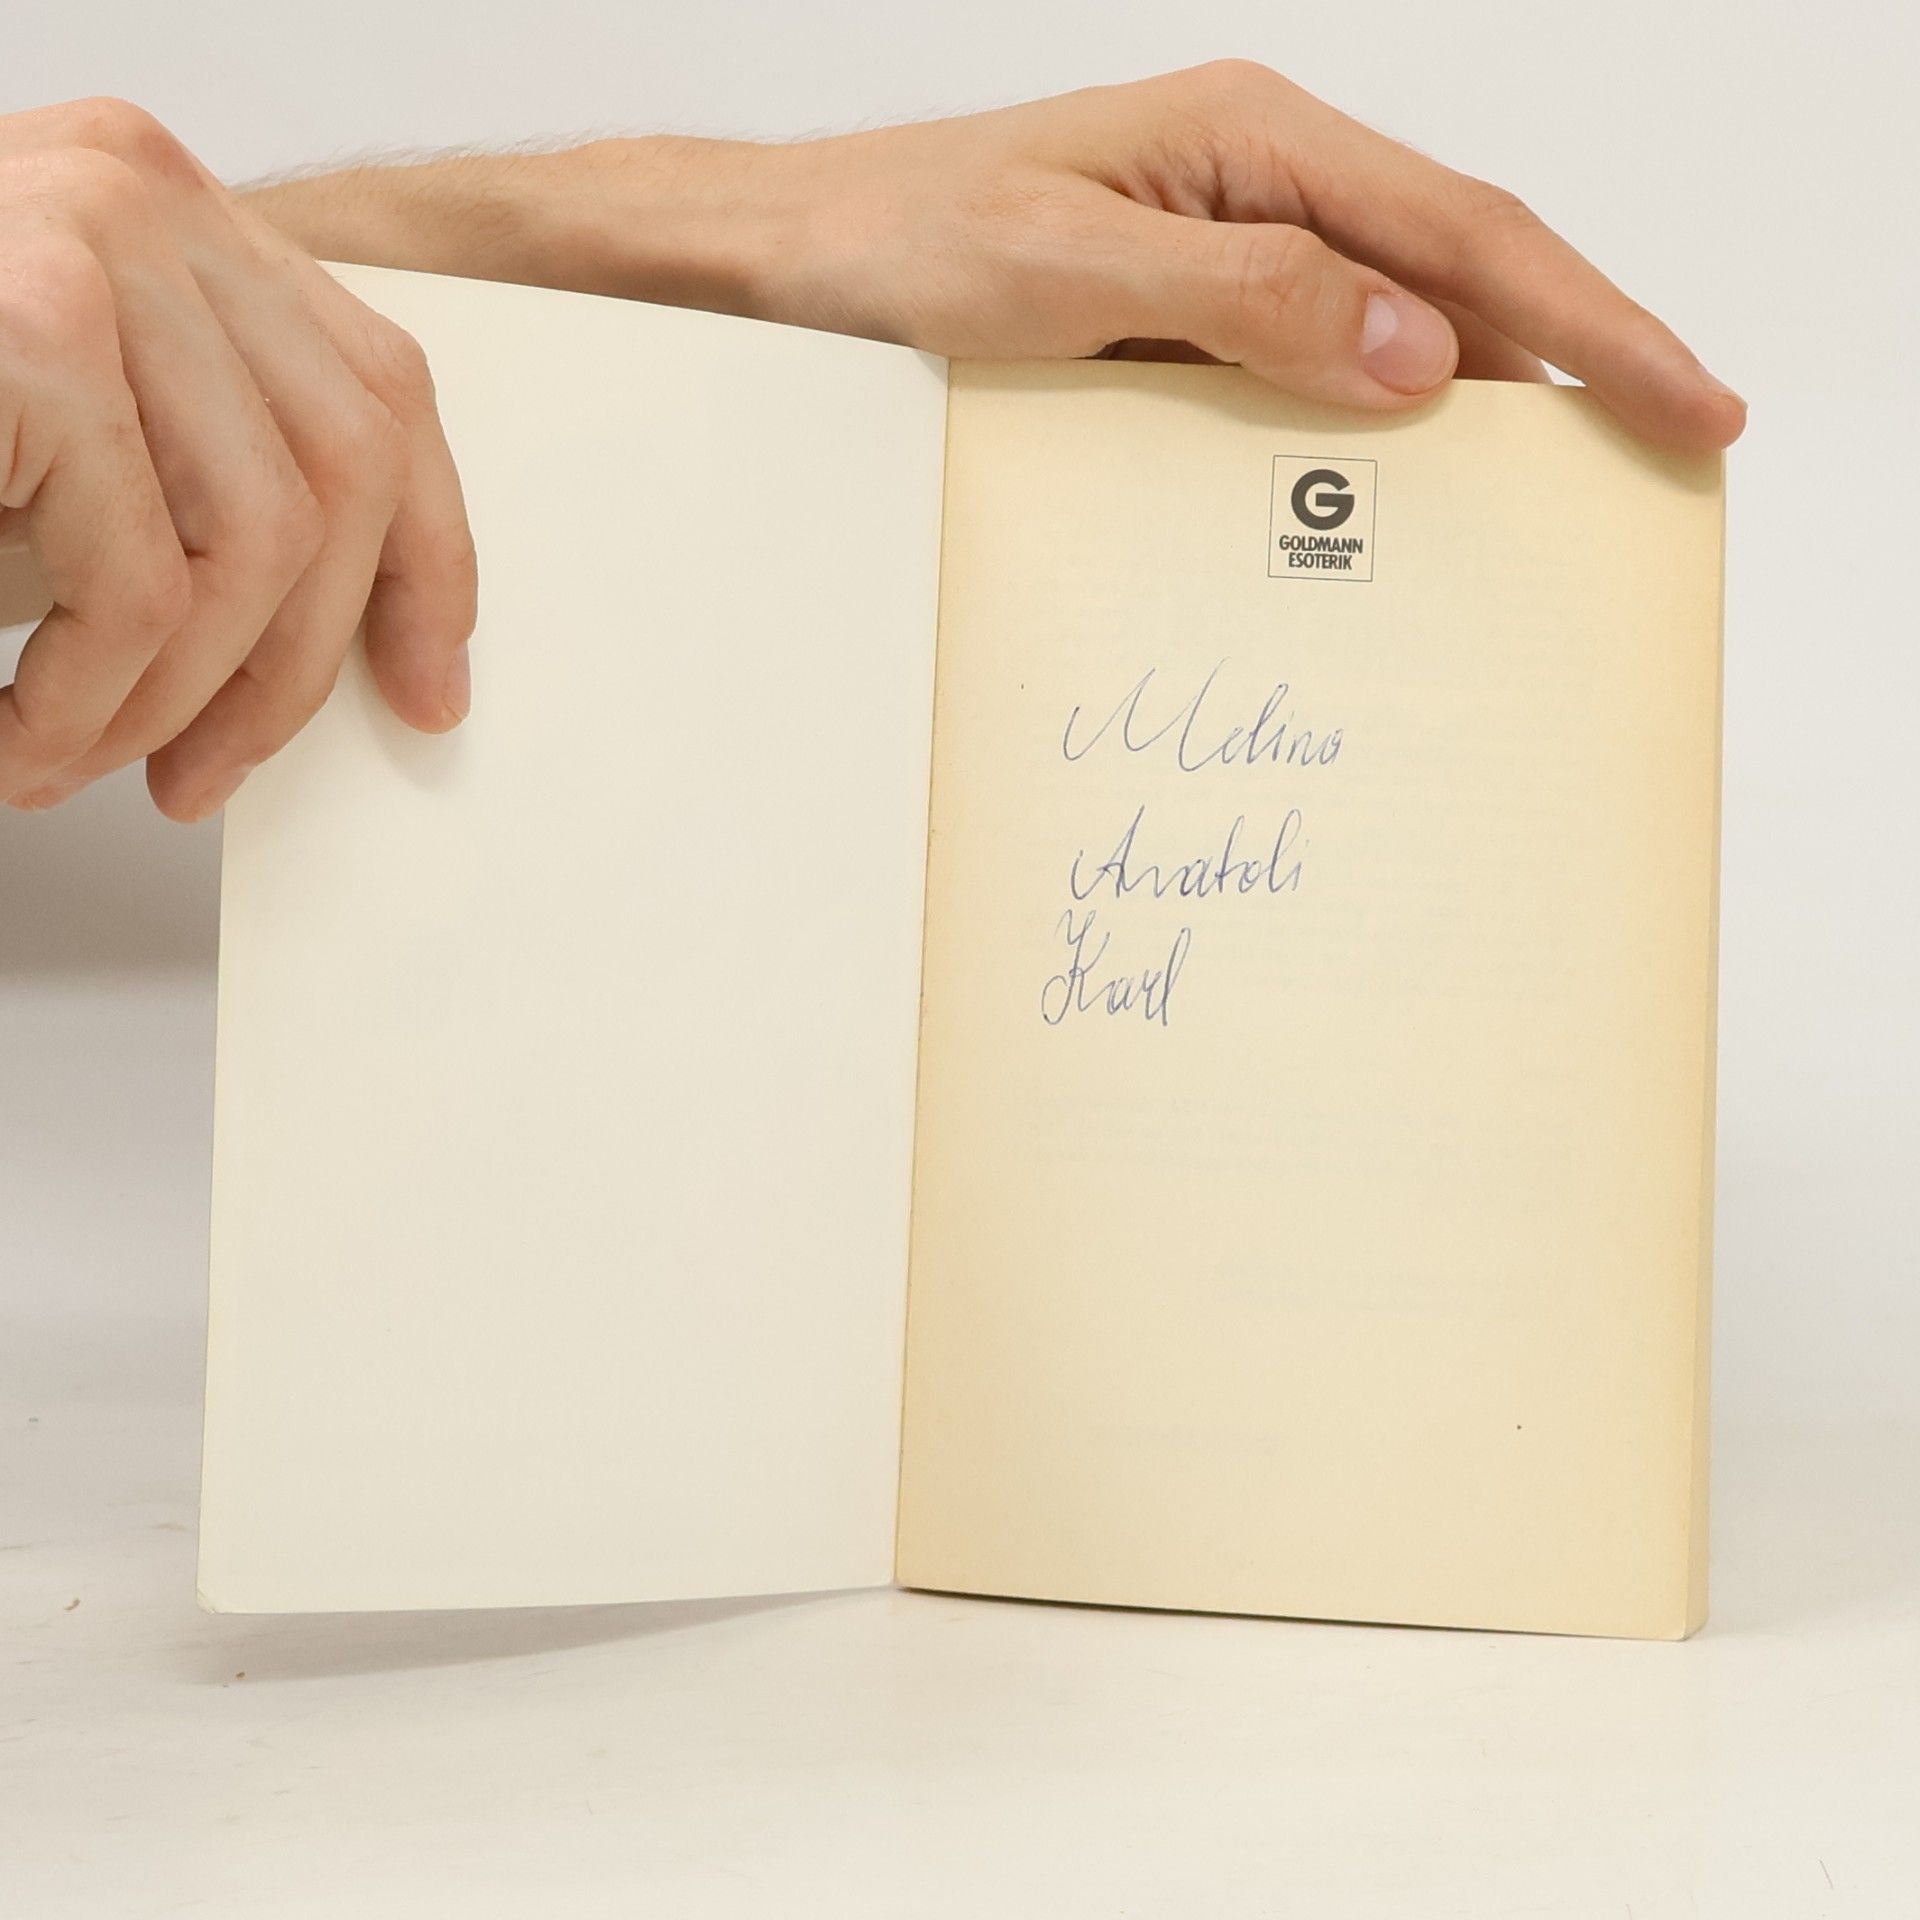 G
GOLDMANN
ESOTERIK
Melina
Anatoli
Karl